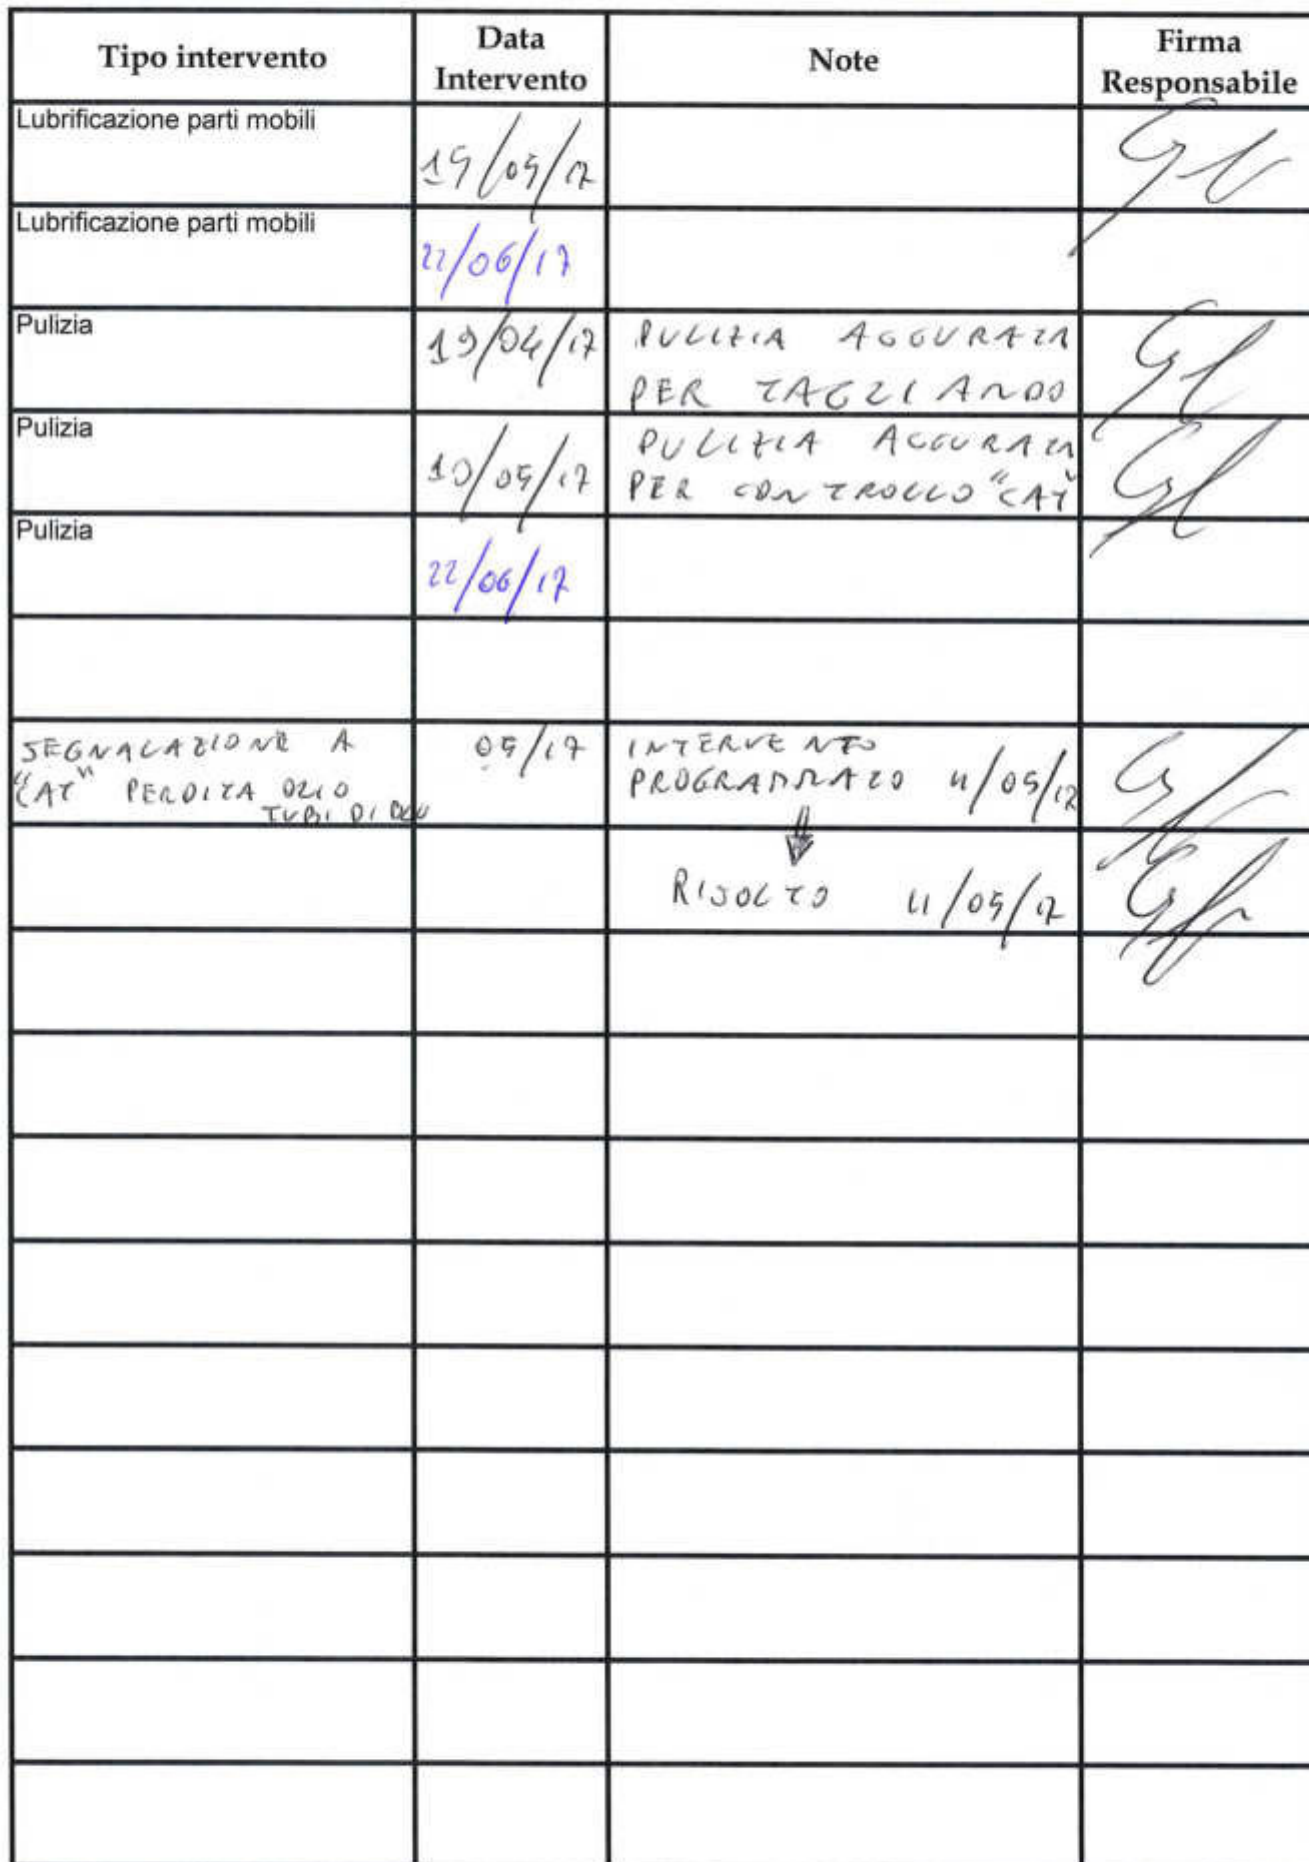 Tipo intervento
Data
Intervento
Note
Firma
Responsabile
Lubrificazione parti mobili
15/05/17
Lubrificazione parti mobili
22/06/17
Pulizia
19/04/17
PULIZIA ACCURATA
PER TAGLIANDO
Pulizia
10/05/17
PULIZIA ACCURATA
PER CONTROLLO "CAT"
Pulizia
22/06/17
SEGNALAZIONE A
"CAT" PERDITA OLIO
TUBI DI
05/17
INTERVENTO
PROGRAMMATO 11/05/17
RISOLTO 11/05/17